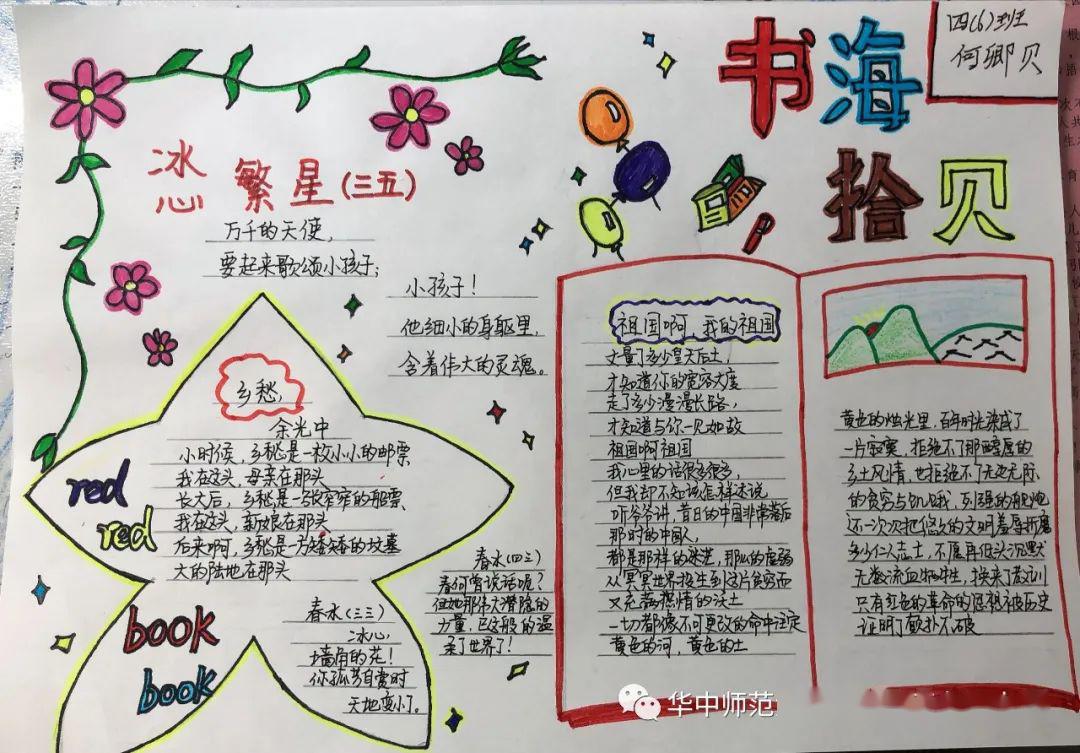 书海
拾贝
四(6)班
何卿贝
冰心
繁星(三五)
万千的天使,
要起来歌颂小孩子;
小孩子!
他细小的身躯里,
含着伟大的灵魂。
乡愁
余光中
小时候,乡愁是一枚小小的邮票
我在这头,母亲在那头
长大后,乡愁是一张窄窄的船票
我在这头,新娘在那头
后来啊,乡愁是一方矮矮的坟墓
大的陆地在那头
red
red
book
book
春水(三三)
冰心
墙角的花!
你孤芳自赏时
天地变小了。
春水(四三)
春何曾说话呢?
但她那伟大潜隐的
力量,已这般的温
柔了世界了!
祖国啊,我的祖国
丈量了多少皇天后土
才知道你的宽容大度
走了多少漫漫长路,
才知道与你一见如故
祖国啊祖国
我心里的话很多很多
但我却不知该怎样述说
听爷爷讲,昔日的中国非常落后
那时的中国人,
都是那样的迷茫,那般的虚弱
从冥冥世界投生到这片贫穷而
又充满热情的沃土
一切都像不可更改的命中注定
黄色的河,黄色的土
黄色的烛光里,百年时光染成了
一片寂寞,拒绝不了那西部的
乡土风情,也拒绝不了无边无际
的贫穷与饥饿,列强的舰炮
还一次次把悠久的文明羞辱折磨
多少仁人志士,不愿再低头沉默
无数流血牺牲,换来了教训
只有红色的革命的思想被历史
证明了颠扑不破
华中师范